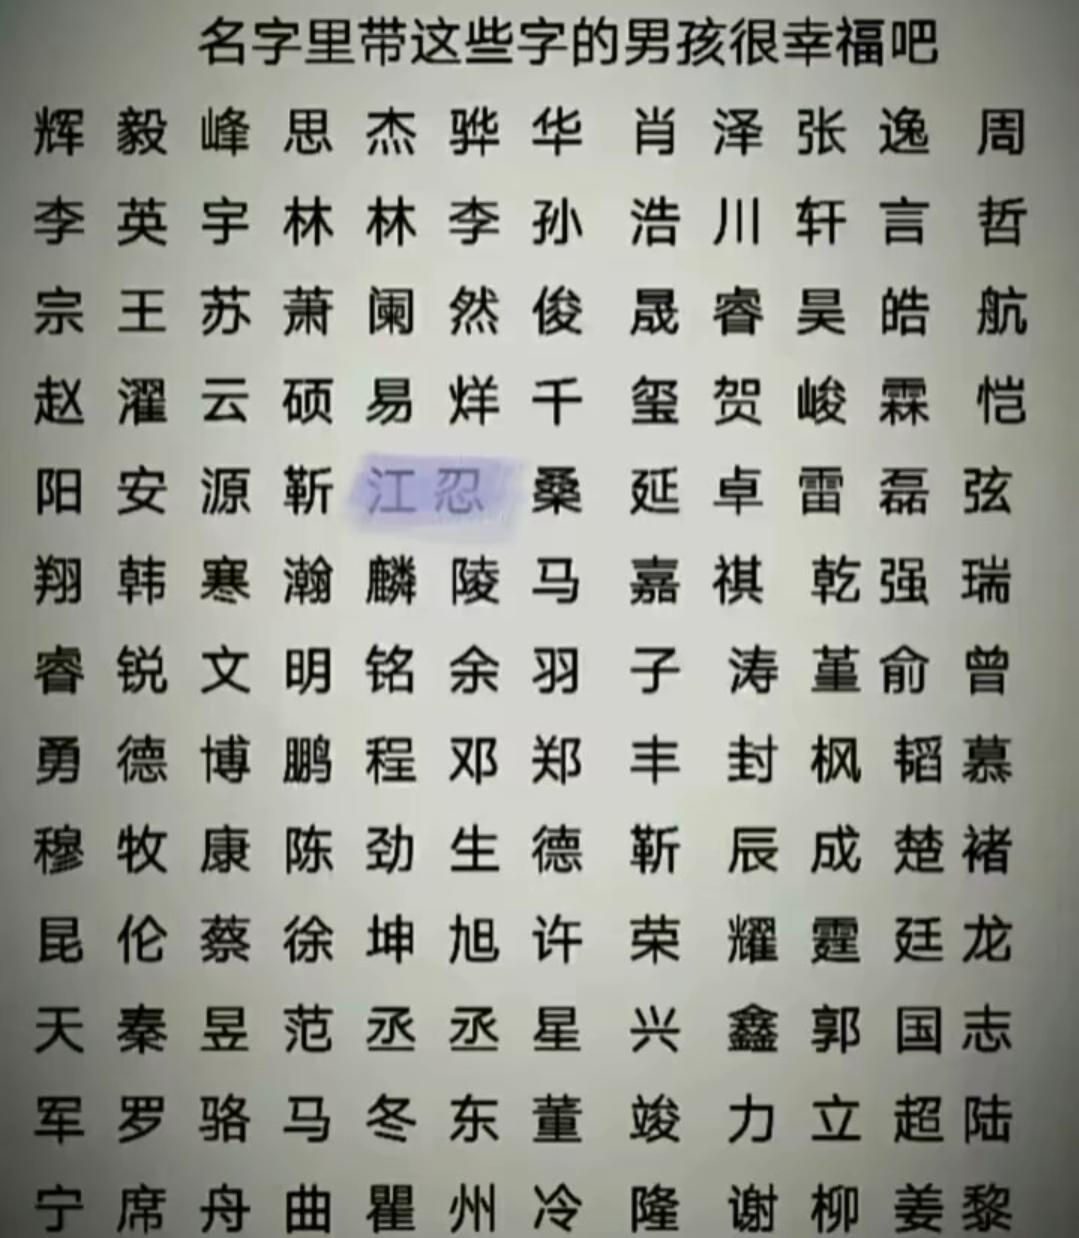 名字里带这些字的男孩很幸福吧
辉 毅 峰 思 杰 骅 华 肖 泽 张 逸 周
李 英 宇 林 林 李 孙 浩 川 轩 言 哲
宗 王 苏 萧 阑 然 俊 晟 睿 昊 皓 航
赵 濯 云 硕 易 烊 千 玺 贺 峻 霖 恺
阳 安 源 靳 江 忍 桑 延 卓 雷 磊 弦
翔 韩 寒 瀚 麟 陵 马 嘉 祺 乾 强 瑞
睿 锐 文 明 铭 余 羽 子 涛 堇 俞 曾
勇 德 博 鹏 程 邓 郑 丰 封 枫 韬 慕
穆 牧 康 陈 劲 生 德 靳 辰 成 楚 褚
昆 伦 蔡 徐 坤 旭 许 荣 耀 霆 廷 龙
天 秦 昱 范 丞 丞 星 兴 鑫 郭 国 志
军 罗 骆 马 冬 东 董 竣 力 立 超 陆
宁 席 舟 曲 瞿 州 冷 隆 谢 柳 姜 黎